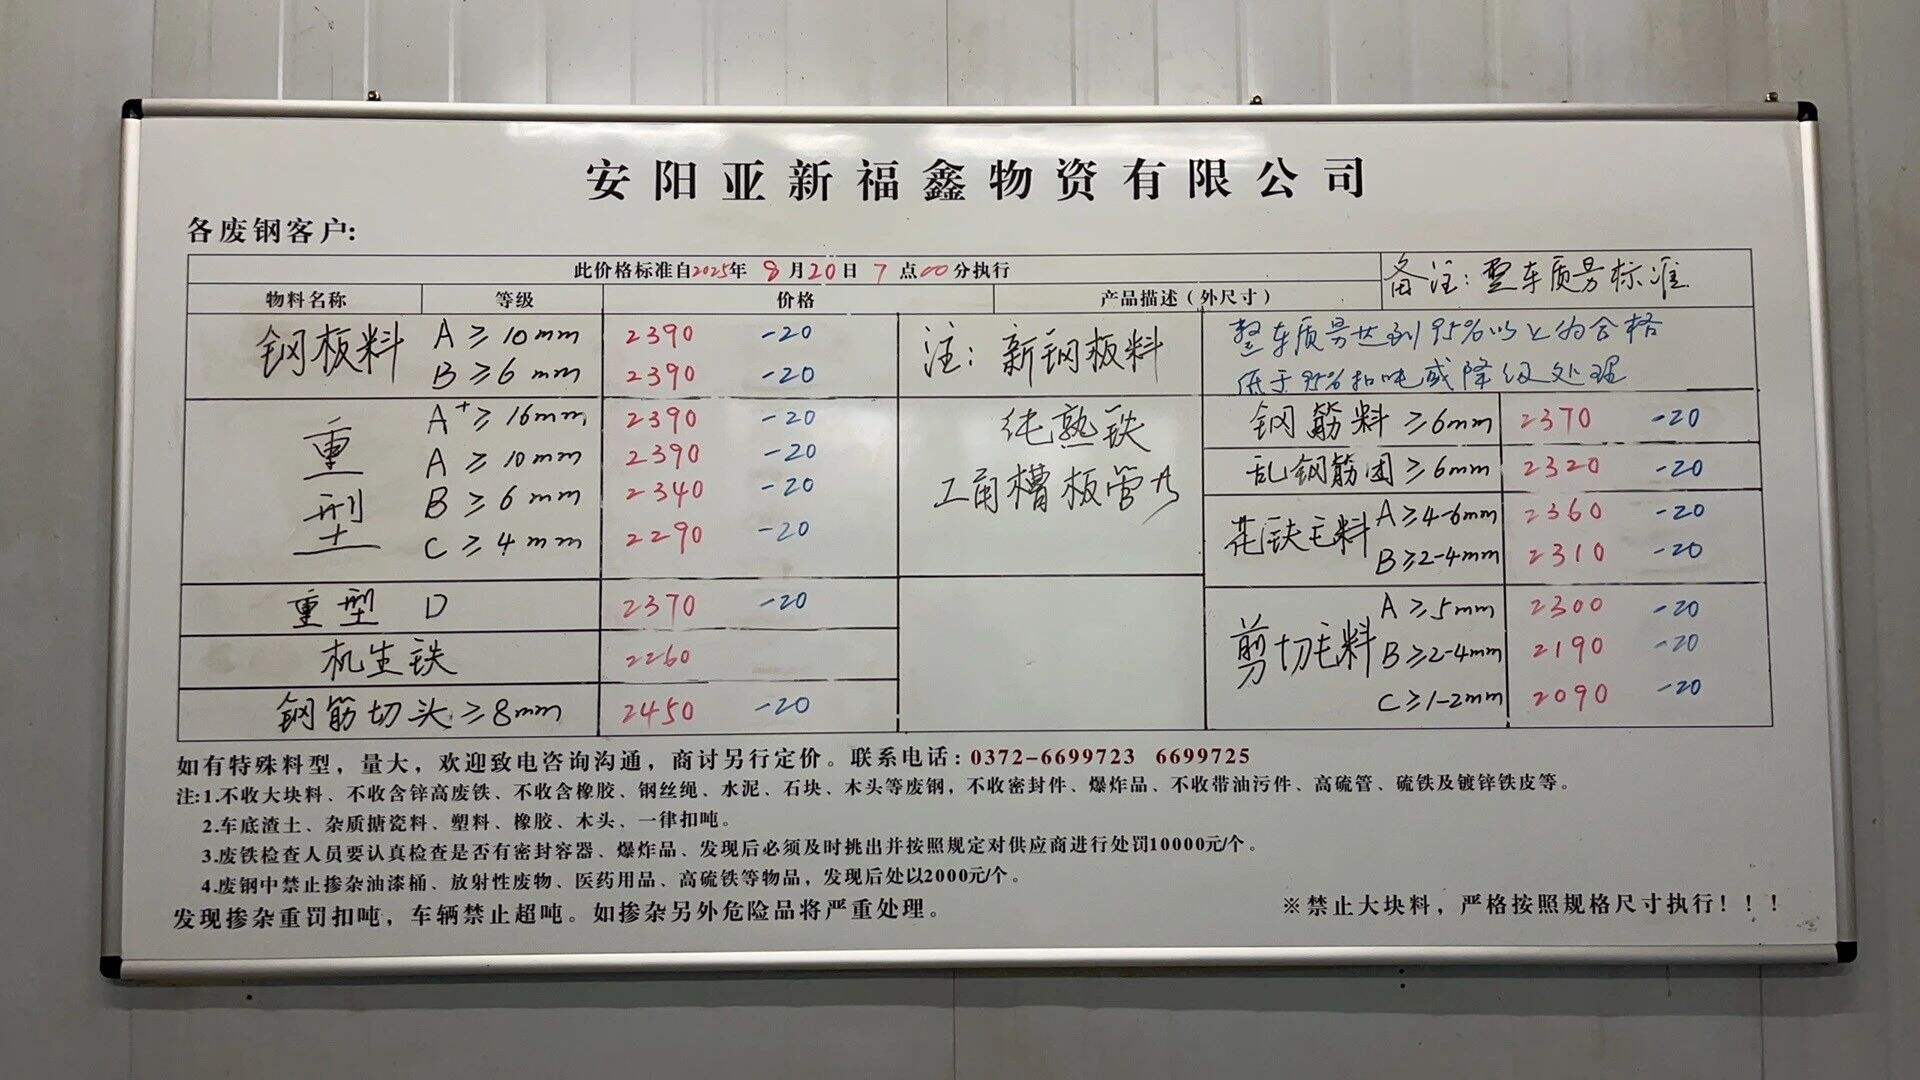 安阳亚新福鑫物资有限公司
各废钢客户:
此价格标准自2025年 8月20日 7点00分执行
备注: 整车质量标准
物料名称 等级 价格 产品描述(外尺寸)
钢板料 A≥10mm 2390 -20
B≥6mm 2390 -20
注: 新钢板料
整车质量达到95%以上为合格
低于95%扣吨或降级处理
重型 A+≥16mm 2390 -20
A≥10mm 2390 -20
B≥6mm 2340 -20
C≥4mm 2290 -20
纯熟铁
工角槽板管
重型 D 2370 -20
机生铁 2260
钢筋切头≥8mm 2450 -20
钢筋料≥6mm 2370 -20
乱钢筋团≥6mm 2320 -20
花铁毛料 A≥4-6mm 2360 -20
B≥2-4mm 2310 -20
剪切毛料 A≥5mm 2300 -20
B≥2-4mm 2190 -20
C≥1-2mm 2090 -20
如有特殊料型，量大，欢迎致电咨询沟通，商讨另行定价。联系电话: 0372-6699723 6699725
注:1.不收大块料、不收含锌高废铁、不收含橡胶、钢丝绳、水泥、石块、木头等废钢，不收密封件、爆炸品、不收带油污件、高硫管、硫铁及镀锌铁皮等。
2.车底渣土、杂质搪瓷料、塑料、橡胶、木头、一律扣吨。
3.废铁检查人员要认真检查是否有密封容器、爆炸品、发现后必须及时挑出并按照规定对供应商进行处罚10000元/个。
4.废钢中禁止掺杂油漆桶、放射性废物、医药用品、高硫铁等物品，发现后处以2000元/个。
发现掺杂重罚扣吨，车辆禁止超吨。如掺杂另外危险品将严重处理。
※禁止大块料，严格按照规格尺寸执行！！！